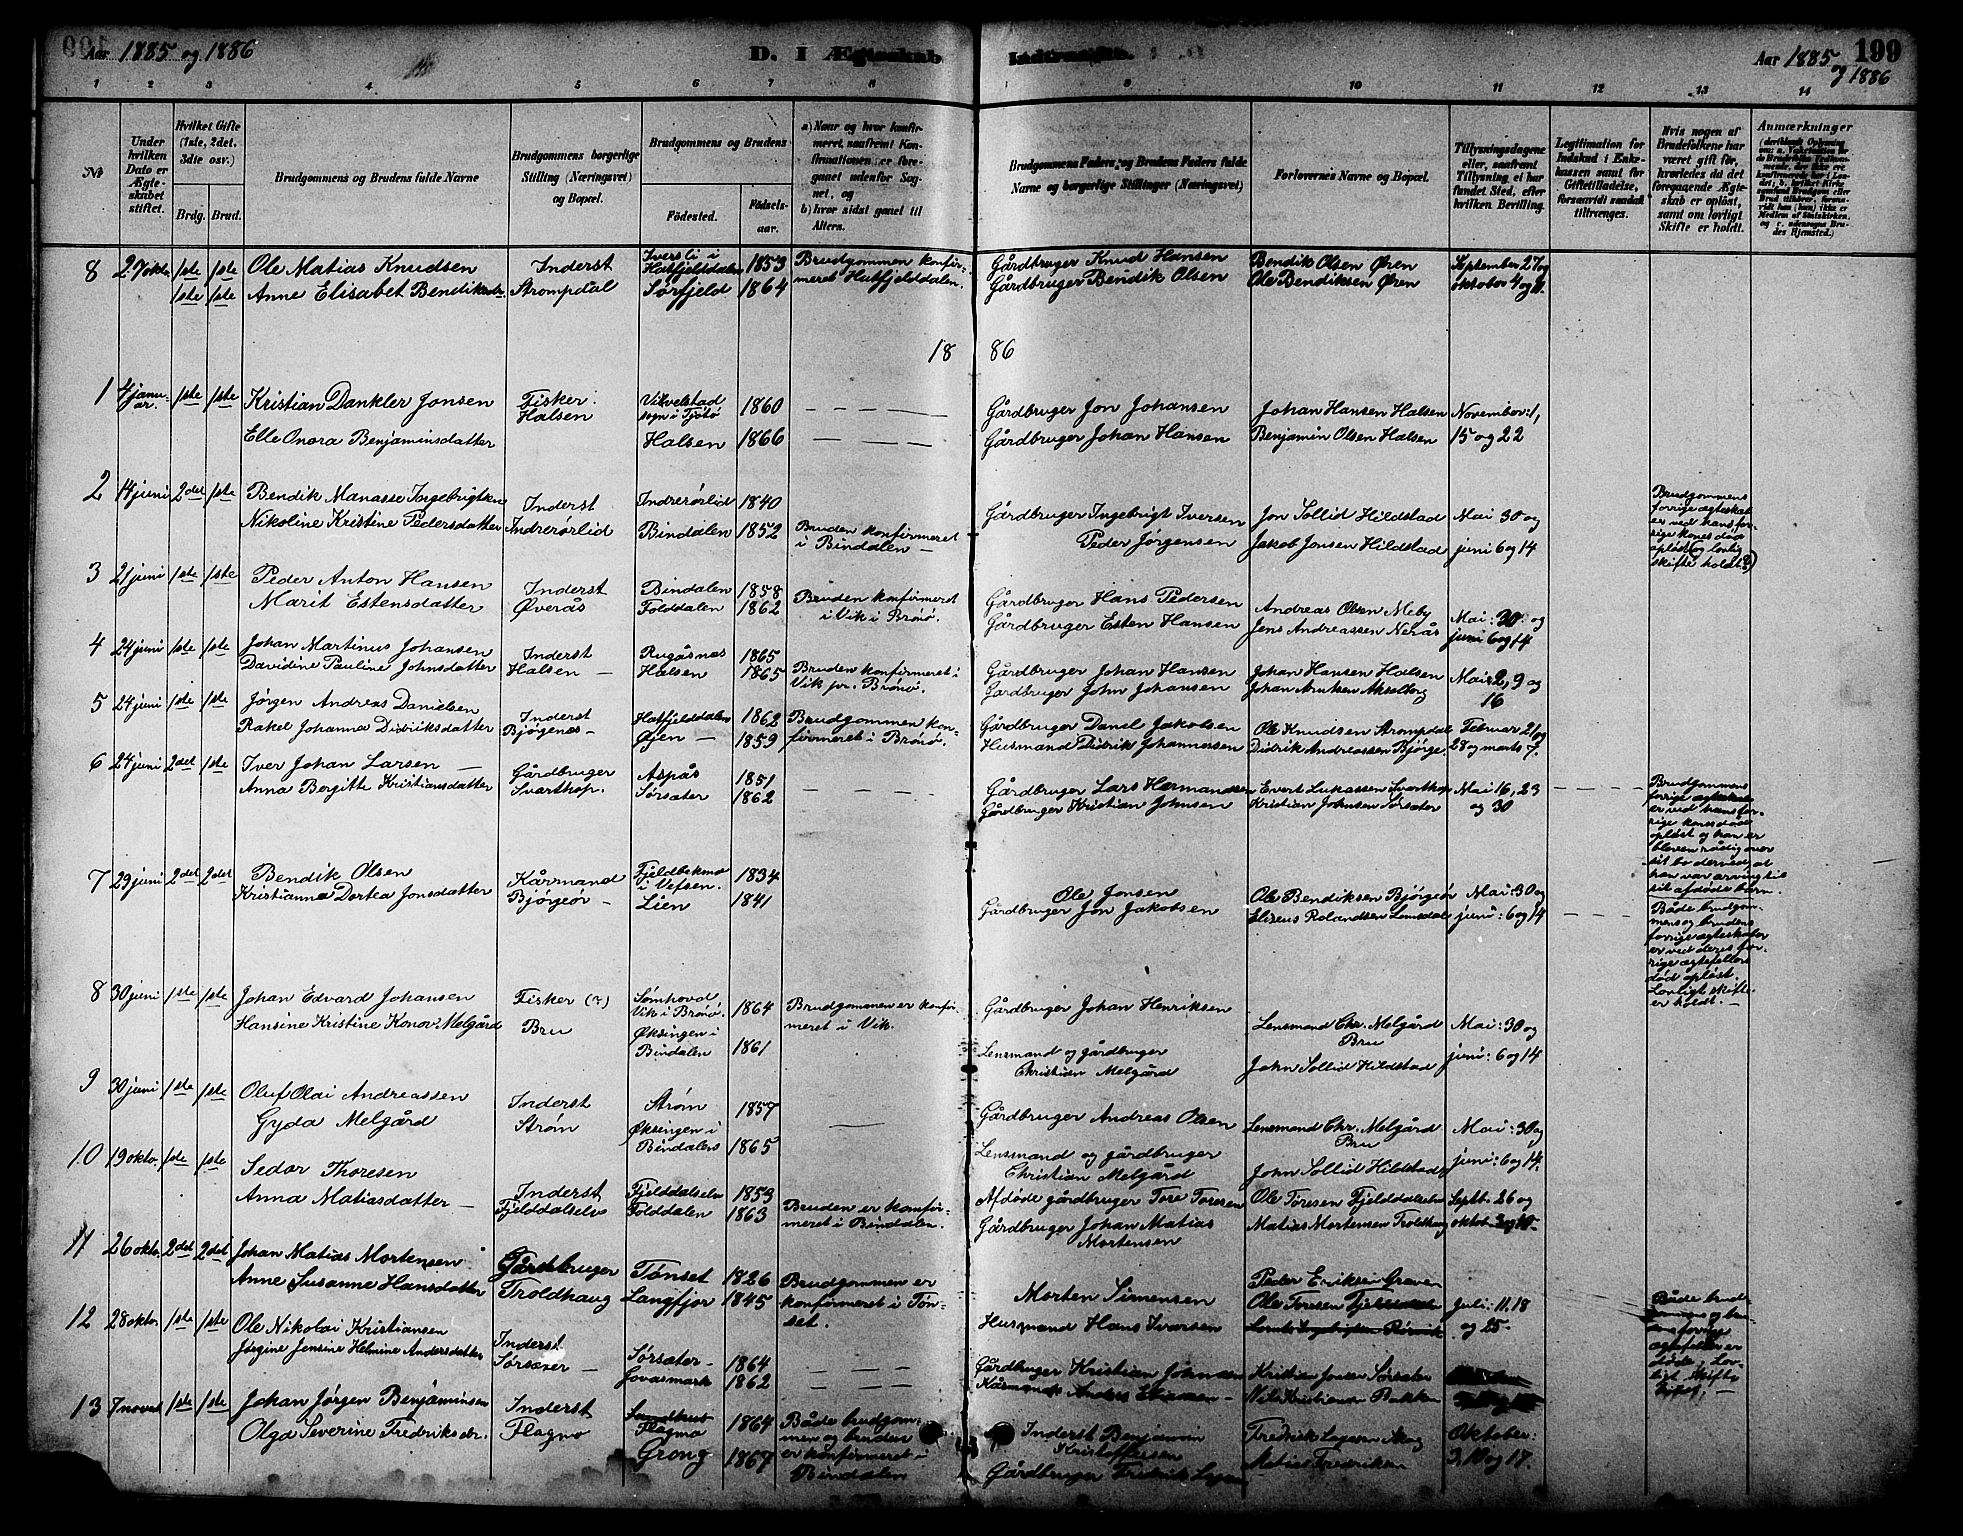 Aar 1885 og 1886
D. I Ægteskab
Indtraadte.
Aar 1885 og 1886
199
1 2 3 4 5 6 7 8 9 10 11 12 13 14
No
Under hvilken Dato er Ægteskabet stiftet.
Hvilket Gifte (1ste, 2det, 3die osv.)
Brdg. Brud.
Brudgommens og Brudens fulde Navne
Brudgommens borgerlige Stilling (Næringsvei) og Bopæl.
Brudgommens og Brudens
Fødested.
Fødselsaar.
a) Naar og hvor konfirmeret, saafremt Konfirmationen er foregaaet udenfor Sognet, og
b) hvor sidst gaaet til Alters.
Brudgommens Faders og Brudens Faders fulde Navne og borgerlige Stillinger (Næringsvei)
Forlovernes Navne og Bopæl.
Tillysningsdagene eller, saafremt Tillysning ei har fundet Sted, efter hvilken Bevilling.
Legitimation for Indskud i Enkekassen samt for Giftetilladelse, forsaavidt saadan tiltrænges.
Hvis nogen af Brudefolkene har været gift før, hvorledes da det foregaaende Ægteskab er opløst, samt om lovligt Skifte er holdt.
Anmærkninger
8 27 okto 1ste 1ste Ole Matias Knudsen Inderst Iversli i Hatfjelddalen 1853 Brudgommen konfirmeret Hatfjelddalen. Gårdbruger Knud Hansen Bendik Olsen Øren September 27 og
1ste 1ste Anne Elisabet Bendiksdr. Strompdal Sørfjeld 1864 Gårdbruger Bendik Olsen Ole Bendiksen Øren oktober 4 og 11.
1886
1 4 januar. 1ste 1ste Kristian Dankler Jonsen Fisker: Halsen Vikvelstad sogn i Tjøtø 1860 Gårdbruger Jon Johansen Johan Hansen Halsen November: 1,
Elle Onora Benjaminsdatter Halsen 1866 Gårdbruger Johan Hansen Benjamin Olsen Halsen 15 og 22
2 14 juni 2det 1ste Bendik Manasse Ingebrigtsen Inderst Indrerørlid 1840 Gårdbruger Ingebrigt Iversen Jon Sollid Hildstad Mai 30 og
Nikoline Kristine Pedersdatter Indrerørlid Bindalen 1852 Bruden konfirmeret i Bindalen — Peder Jørgensen Jakob Jonsen Hildstad juni 6 og 14
Brudgommens forrige ægteskab er ved hans forrige kones død opløst (og lovlig skifte holdt?)
3 21 juni 1ste 1ste Peder Anton Hansen Inderst Bindalen 1858 Gårdbruger Hans Pedersen Andreas Olsen Meby Mai: 30 og
Marit Estensdatter Øverås Folddalen 1862 Bruden konfirmeret i Vik i Brønø. Gårdbruger Esten Hansen Jens Andreassen Nerås juni 6 og 14
4 24 juni 1ste 1ste Johan Martinus Johansen Inderst Rugåsnes 1865 Gårdbruger Johan Hansen Johan Hansen Halsen Mai 2, 9 og
Davidine Pauline Johnsdatter Halsen — Halsen 1865 Bruden konfirmeret i Vik pr. Brønø. Gårdbruger John Johansen Johan 16
5 24 juni 1ste 1ste Jørgen Andreas Danielsen Inderst Hatfjelddalen 1862 Brudgommen konfirmeret i Brønø. Gårdbruger Danel Jakobsen Ole Knudsen Strompdal Februar 21 og
Rakel Johanna Didriksdatter Bjørgenes — Øyen — 1859 Husmand Didrik Johannessen Didrik Andreassen Bjørge. 28 og marts 7.
6 24 juni 2det 1ste Iver Johan Larsen — Gårdbruger Aspås 1851 Gårdbruger Lars Hermandsen Evert Lukassen Svarthop Mai 16, 23
Anna Bergitte Kristiansdatter Svarthop. Sørsæter 1862 Gårdbruger Kristian Johnsen Kristian Johnsen Sørsæter og 30
Brudgommens forrige ægteskab er ved hans forrige kones død opløst og han er bleven rådig over sit bo derved, at han var arving til sit afdøde barn.
7 29 juni 2det 2det Bendik Olsen Kårmand Fjeldbekmo i Vefsen. 1834 Ole Jonsen Ole Bendiksen Bjørgeør Mai: 30 og
Kristianna Dortea Jonsdatter Bjørgeør — Lien 1841 Gårdbruger Jon Jakobsen Eliseus Rolandsen Lomsdal juni: 6 og 14
Både brudgommens og brudens forrige ægteskaber er ved deres forrige ægtefellers død opløst. Lovligt skifte er holdt. —
8 30 juni 1ste 1ste Johan Edvard Johansen Fisker (?) Sømhovd Vik i Brønø 1864 Brudgommen er konfirmeret i Vik. Gårdbruger Johan Henriksen Lensmand Chr. Melgård Bru Mai: 30 og
Hansine Kristine Konov Melgård Bru Øksingen i Bindalen 1861 Lensmand og gårdbruger Christian Melgård John Sollid Hildstad juni: 6 og 14
9 30 juni 1ste 1ste Oluf Olai Andreassen Inderst Strøm 1857 Gårdbruger Andreas Olsen Lensmand Chr. Melgård Bru Mai: 30 og
Gyda Melgård Strøm Øksingen i Bindalen 1865 Lensmand og gårdbruger Christian Melgård John Sollid Hildstad juni: 6 og 14.
10 19 okto. 1ste 1ste Sedor Thoresen Inderst Fjelddalselv 1853 Afdøde gårdbruger Tore Toresen Ole Toresen Fjelddalselv Septb. 26 og
Anna Matiasdatter — Fjelddalselv Folddalen 1863 Bruden er konfirmeret i Bindalen. Gårdbruger Johan Matias Mortensen Matias Mortensen Troldhaug oktob. 3 og 10.
11 26 okto. 2det 2det Johan Matias Mortensen Gårdbruger Tønset 1826 Brudgommen er konfirmeret i Tønset. Morten Simensen Peder Eriksen Graven
Anne Susanne Hansdatter Troldhaug Langfjor 1845 Husmand Hans Ivarsen Ole Toresen Fjelddalselv Juli: 11. 18 og 25.
Både brudgommens og brudens forrige ægtefeller er døde, Lovligt skifte
12 28 okto. 1ste 1ste Ole Nikolai Kristiansen Inderst Sørsæter — 1864 Gårdbruger Kristian Johnsen Kristian Jonsen Sørsæter
Jørgine Jensine Helmine Andersdatter Sørsæter — 1862 Nils Kristiansen Bakken
13 7 novbr 1ste 1ste Johan Jørgen Benjaminsen Inderst Flagmo 1864 Både brudgommen og bruden er konfirmeret i Bindalen Inderst Benjamin Kristoffersen Fredrik Oktober:
Olga Severine Fredriksdr. Flagmo Grong 1867 Gårdbruger Fredrik Matias Fredriksen 3, 10 og 17.